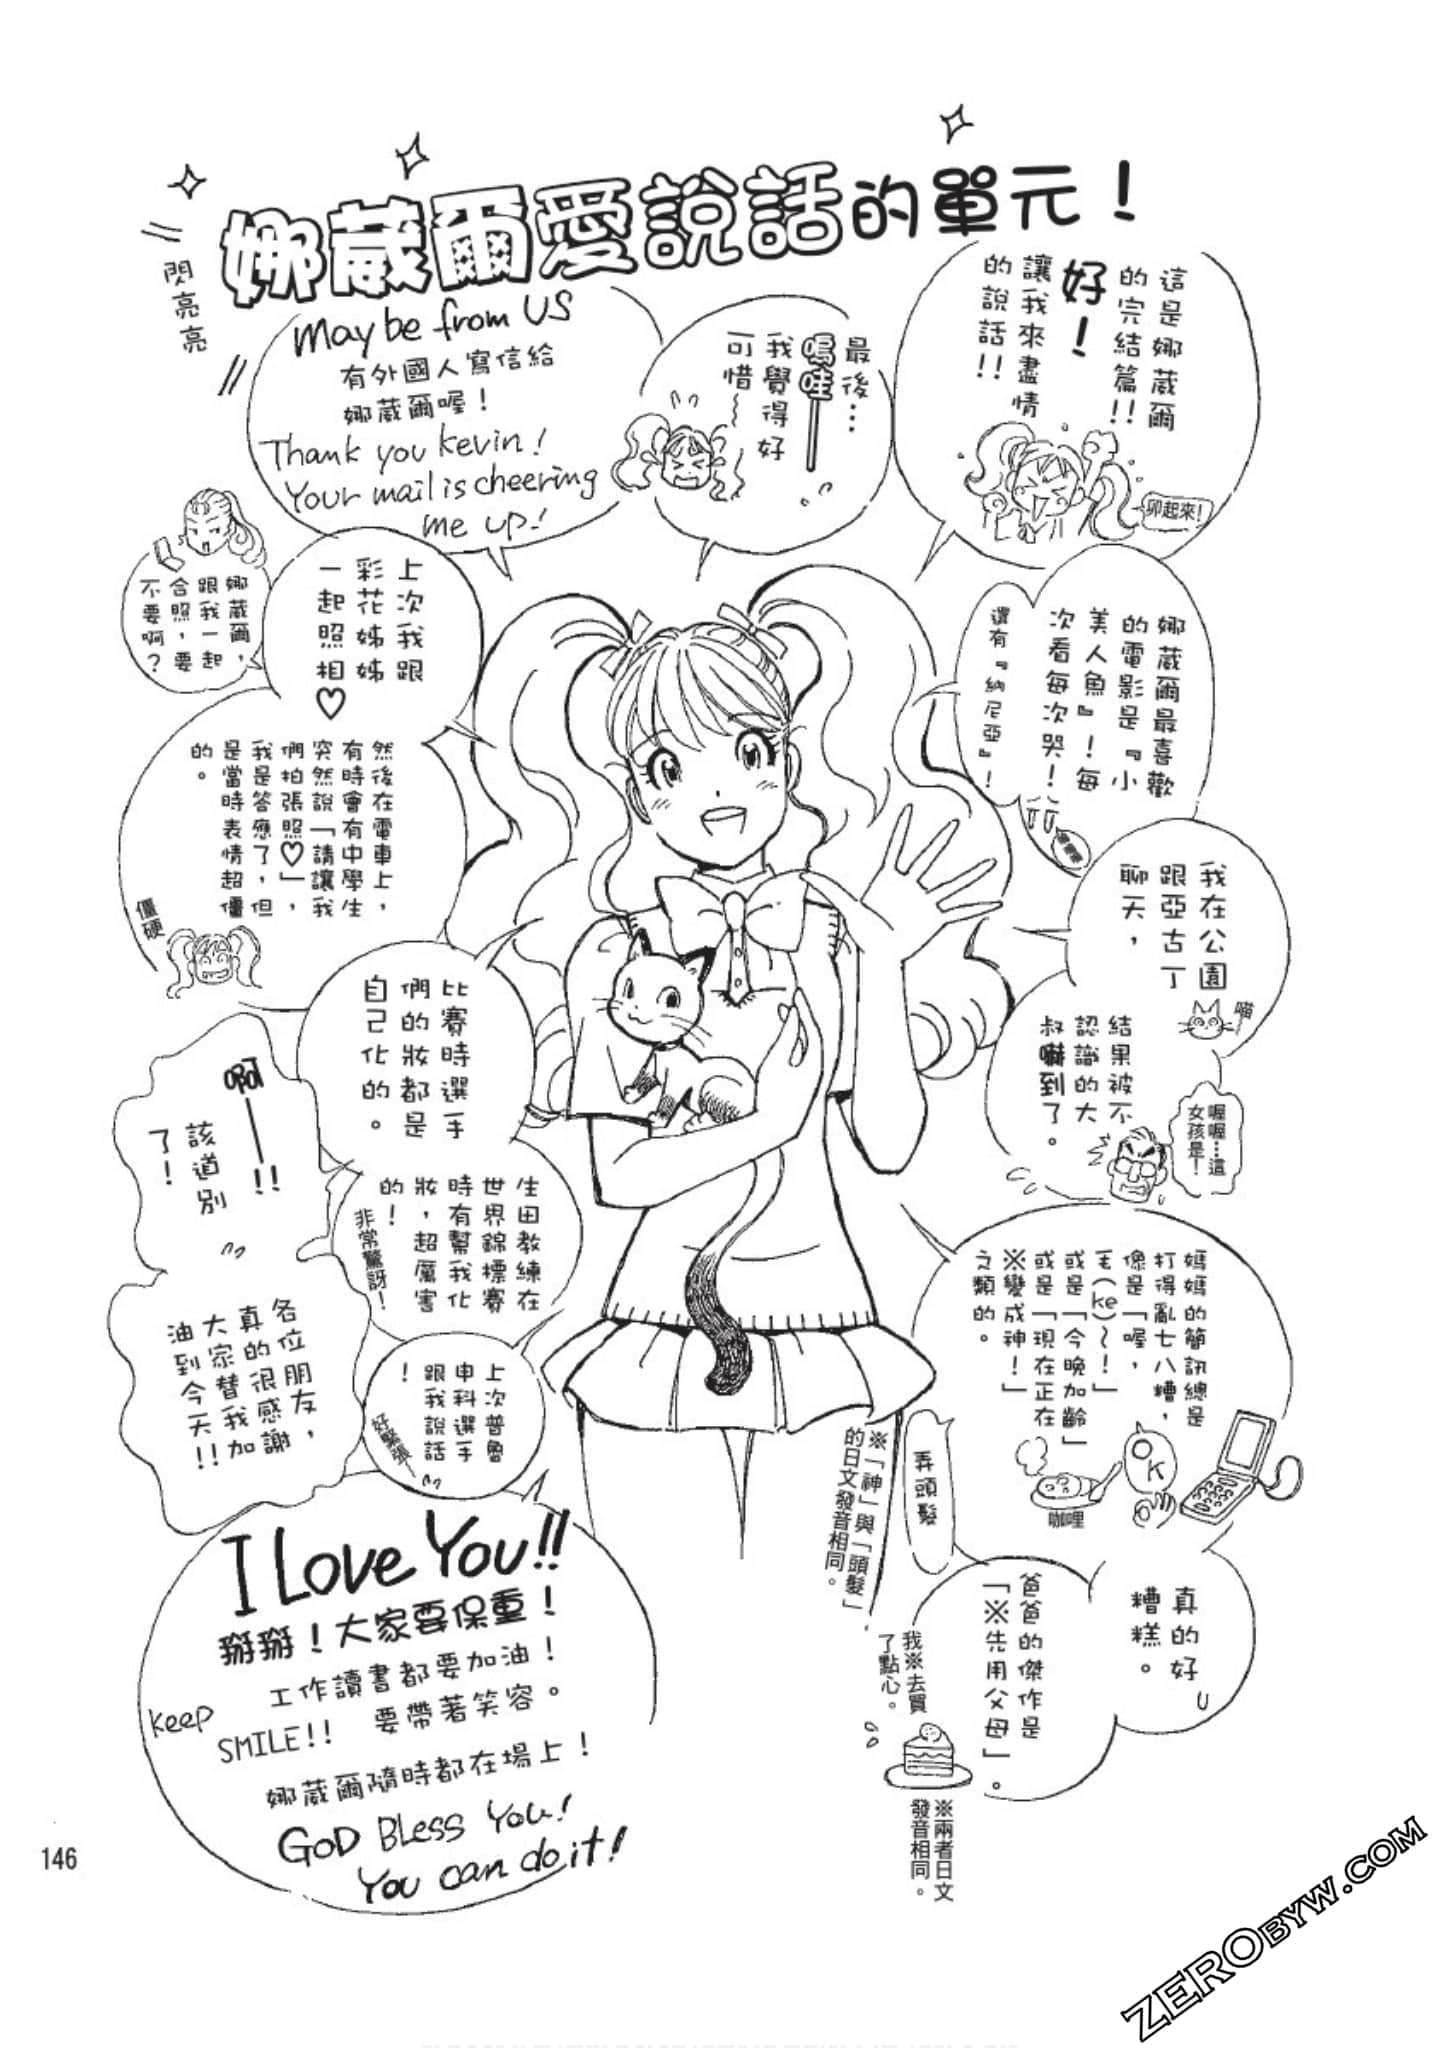 娜葳爾愛說話的單元！
閃亮亮
這是娜葳爾
的完結篇!!
好！
讓我來盡情
的說話!!
卯起來！
最後…
嗚哇——
我覺得好
可惜～
Maybe from US
有外國人寫信給
娜葳爾喔！
Thank you Kevin!
Your mail is cheering
me up!
上次我跟
彩花姊姊
一起照相♡
娜葳爾，
跟我一起
合照，要
不要啊？
然後在電車上，
有時會有中學生
突然說「請讓我
們拍張照♡」，
我是答應了，但
是當時表情超僵
的。
僵硬
娜葳爾最喜歡
的電影是『小
美人魚』！每
次看每次哭！
還有『納尼亞』！
我在公園
跟亞古丁
聊天，
喵
結果被不
認識的大
叔嚇到了。
喔喔…這
女孩是！
比賽時選手
們的妝都是
自己化的。
生田教練在
世界錦標賽
時有幫我化
妝，超厲害
的！
非常驚訝！
上次普魯
申科選手
跟我說話
！
好緊張～
媽媽的簡訊總是
打得亂七八糟，
像是「喔，
毛(ke)～！」
或是「今晚加齡」
或是「現在正在
※變成神！」
之類的。
OK
咖哩
弄頭髮
※「神」與「頭髮」
的日文發音相同。
真的好
糟糕。
爸爸的傑作是
「※先用父母」。
我※去買
了點心。
※兩者日文
發音相同。
啊——!!
該道別
了！
各位朋友，
真的很感謝
大家替我加
油到今天!!
I Love You!!
掰掰！大家要保重！
工作讀書都要加油！
Keep
SMILE!! 要帶著笑容。
娜葳爾隨時都在場上！
GOD BLess You!
You can do it!
146
ZEROBYW.COM